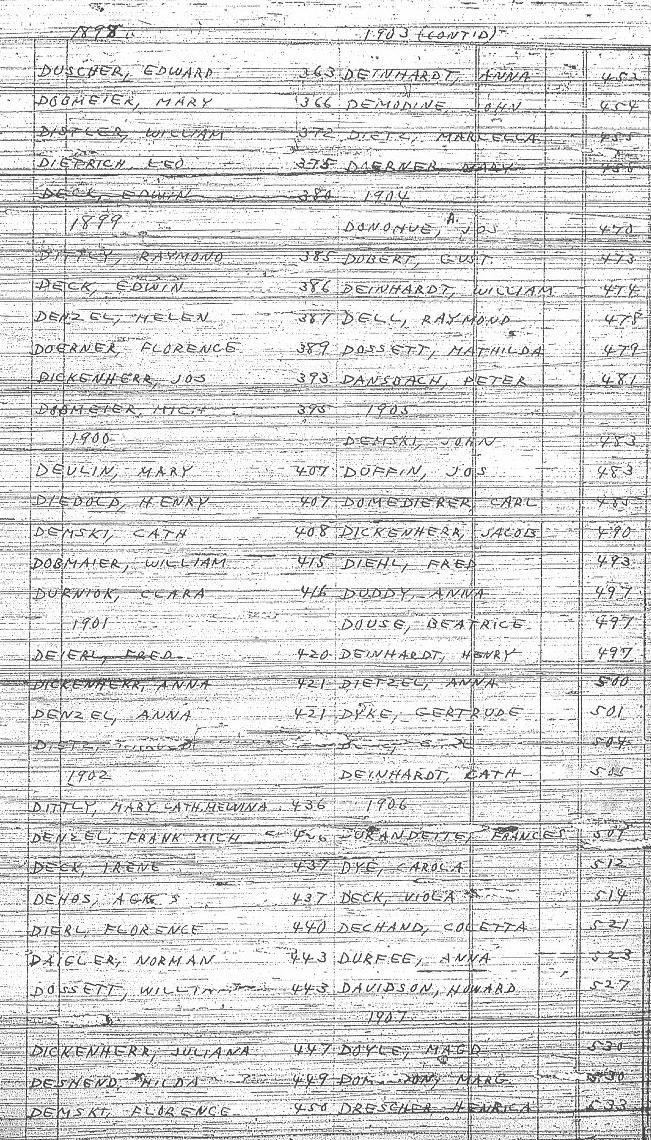 1898
DUSCHER, EDWARD 363
DOBMEIER, MARY 366
DISTLER, WILLIAM 372
DIETRICH, LEO 375
DECK, EDWIN 380
1899
DITTLY, RAYMOND 385
DECK, EDWIN 386
DENZEL, HELEN 387
DOERNER, FLORENCE 389
DICKENHERR, JOS 393
DOBMEIER, MICH 395
1900
DEVLIN, MARY 407
DIEBOLD, HENRY 407
DEMSKI, CATH 408
DOBMAIER, WILLIAM 415
DURNIOK, CLARA 416
1901
DEIERL, FRED 420
DICKENHERR, ANNA 421
DENZEL, ANNA 421
DIETZ,
1902
DITTLY, MARY CATH. MELVINA 436
DENZEL, FRANK MICH
DECK, IRENE 437
DEHOS, 437
DIERL, FLORENCE 440
DAIGLER, NORMAN 443
DOSSETT, 443
DICKENHERR, JULIANA 447
DESHEND, HILDA 449
DEMSKI, FLORENCE 450
1903 (CONT'D)
DEINHARDT, ANNA 452
DEMODINE, JOHN 454
DIETZ, MARCELLA 455
DOERNER, MARY
1904
DONOHUE, JOS A. 470
DOBERT, GUST. 473
DEINHARDT, WILLIAM 474
DELL, RAYMOND 478
DOSSETT, MATHILDA 479
DANSBACH, PETER 481
1905
DEMSKI, JOHN 483
DUFFIN, JOS 483
DOMEDIERER, CARL 485
DICKENHERR, JACOB 490
DIEHL, FRED 493
DUDDY, ANNA 497
DOUSE, BEATRICE 497
DEINHARDT, HENRY 497
DIETZEL, ANNA 500
DYKE, GERTRUDE 501
504
DEINHARDT, CATH 505
1906
FRANCES
DYE, CAROLA 512
DECK, VIOLA 514
DECHAND, COLETTA 521
DURFEE, ANNA 523
DAVIDSON, HOWARD 527
1907
DOYLE, MAGD 530
MARG. 530
DRESCHER, HENRICA 533